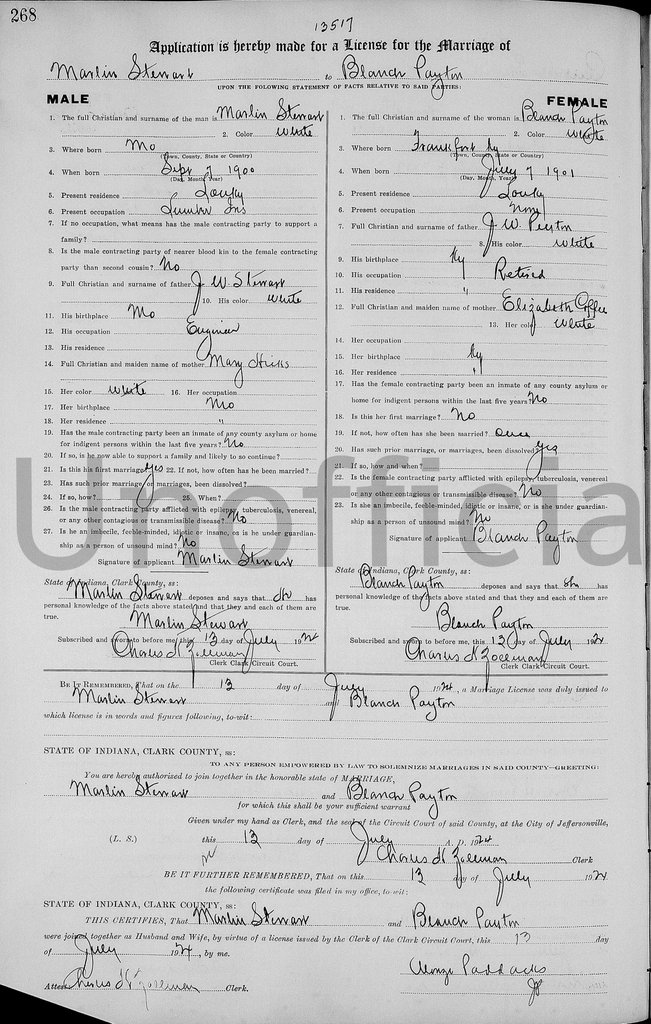 268
13517
Application is hereby made for a License for the Marriage of
Marlin Stewart to Blanch Payton
UPON THE FOLLOWING STATEMENT OF FACTS RELATIVE TO SAID PARTIES:
MALE
1. The full Christian and surname of the man is Marlin Stewart
2. Color White
3. Where born Mo
(Town, County, State or Country)
4. When born Sept 7 1900
(Day, Month, Year)
5. Present residence Louky
6. Present occupation Lumber Ins
7. If no occupation, what means has the male contracting party to support a
family?
8. Is the male contracting party of nearer blood kin to the female contracting
party than second cousin? No
9. Full Christian and surname of father J. W. Stewart
10. His color White
11. His birthplace Mo
12. His occupation Engineer
13. His residence
14. Full Christian and maiden name of mother Mary Hicks
15. Her color White 16. Her occupation
17. Her birthplace Mo
18. Her residence "
19. Has the male contracting party been an inmate of any county asylum or home
for indigent persons within the last five years? No
20. If so, is he now able to support a family and likely to so continue?
21. Is this his first marriage yes 22. If not, how often has he been married?
23. Has such prior marriage, or marriages, been dissolved?
24. If so, how? 25. When?
26. Is the male contracting party afflicted with epilepsy, tuberculosis, venereal,
or any other contagious or transmissible disease? No
27. Is he an imbecile, feeble-minded, idiotic or insane, or is he under guardian-
ship as a person of unsound mind? No
Signature of applicant Marlin Stewart
State of Indiana, Clark County, ss:
Marlin Stewart deposes and says that he has
personal knowledge of the facts above stated and that they and each of them are
true. Marlin Stewart
Subscribed and sworn to before me, this 13 day of July 1924
Charles H Zollman
Clerk Clark Circuit Court.
FEMALE
1. The full Christian and surname of the woman is Blanch Payton
2. Color White
3. Where born Frankfort Ky
(Town, County, State or Country)
4. When born July 7 1901
(Day, Month, Year)
5. Present residence Louky
6. Present occupation None
7. Full Christian and surname of father J. W. Peyton
8. His color White
9. His birthplace Ky
10. His occupation Retired
11. His residence "
12. Full Christian and maiden name of mother Elizabeth Coffee
13. Her color White
14. Her occupation
15. Her birthplace Ky
16. Her residence "
17. Has the female contracting party been an inmate of any county asylum or
home for indigent persons within the last five years? No
18. Is this her first marriage? No
19. If not, how often has she been married? once
20. Has such prior marriage, or marriages, been dissolved? yes
21. If so, how and when?
22. Is the female contracting party afflicted with epilepsy, tuberculosis, venereal
or any other contagious or transmissible disease? No
23. Is she an imbecile, feeble-minded, idiotic or insane, or is she under guardian-
ship as a person of unsound mind? No
Signature of applicant Blanch Payton
State of Indiana, Clark County, ss:
Blanch Payton deposes and says that she has
personal knowledge of the facts above stated and that they and each of them are
true.
Blanch Payton
Subscribed and sworn to before me, this 13 day of July 1924
Charles H Zollman
Clerk Clark Circuit Court.
Unofficial
BE IT REMEMBERED, That on the 13 day of July 1924, a Marriage License was duly issued to
Marlin Stewart and Blanch Payton
which license is in words and figures following, to-wit:
STATE OF INDIANA, CLARK COUNTY, ss:
TO ANY PERSON EMPOWERED BY LAW TO SOLEMNIZE MARRIAGES IN SAID COUNTY—GREETING:
You are hereby authorized to join together in the honorable state of MARRIAGE,
Marlin Stewart and Blanch Payton
for which this shall be your sufficient warrant
Given under my hand as Clerk, and the seal of the Circuit Court of said County, at the City of Jeffersonville,
(L. S.) this 13 day of July A. D. 1924
Charles H Zollman Clerk
BE IT FURTHER REMEMBERED, That on this 13 day of July 1924
the following certificate was filed in my office, to-wit:
STATE OF INDIANA, CLARK COUNTY, ss:
THIS CERTIFIES, That Marlin Stewart and Blanch Payton
were joined together as Husband and Wife, by virtue of a license issued by the Clerk of the Clark Circuit Court, this 13 day
of July 1924, by me.
Alonzo Paddacks
Attest Charles H Zollman Clerk. JP